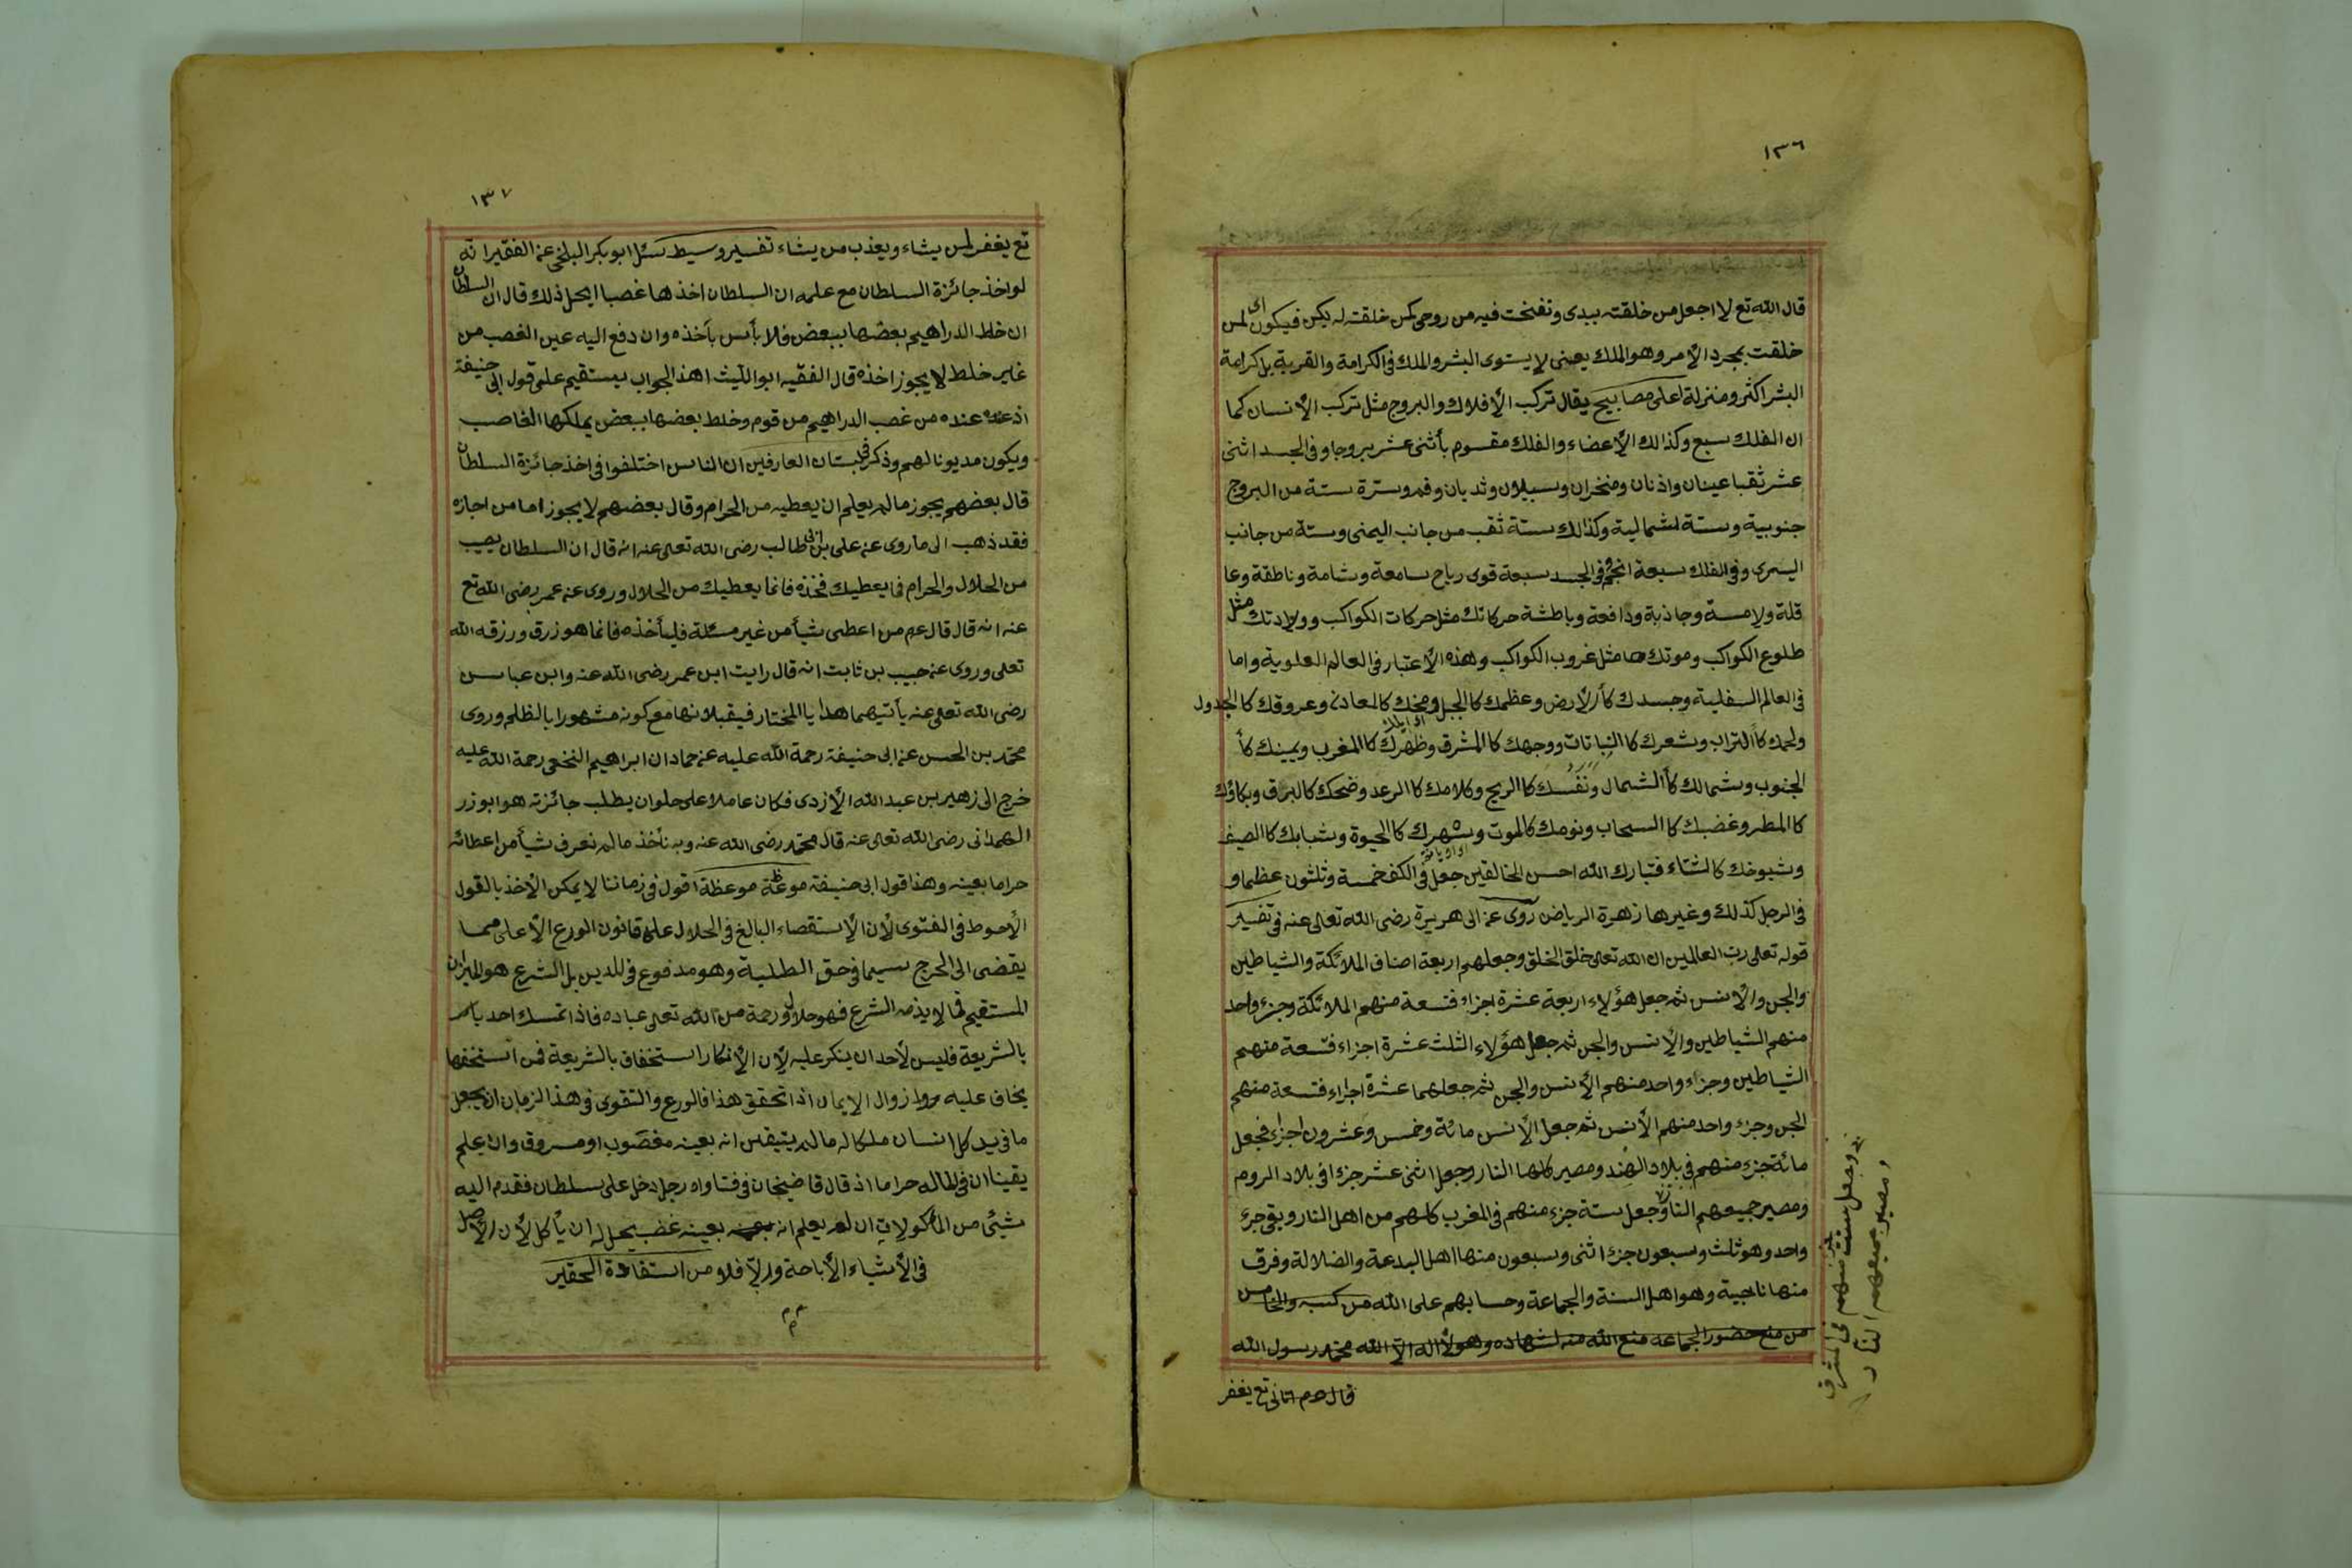 ١٣٦
قال الله تع لا اجعل من خلقته بيدى ونفخت فيه من روحى كمن خلقته له يكن فيكون اى لمن
خلقت بمجرد الأمر وهو الملك يعنى لا يستوى البشر والملك فى الكرامة والقربة بل كرامة
البشر اكثر ومنزلة اعلى مصابيح يقال تركب الأفلاك والبروج مثل تركب الأنسان كما
ان الفلك سبع وكذالك الأعضاء والفلك مقسوم بأثنى عشر بروجا وفى الجسد اثنى
عشر ثقبا عينان واذنان ومنخران وسبيلان وثديان وفم وسترة ستة من البروج
جنوبية وستة شمالية وكذالك ستة ثقب من جانب اليمنى وستة من جانب
اليسرى وفى الفلك سبعة انجم وفى الجسد سبعة قوى رباح سامعة وشامة وناطقة وعا
قلة ولامسة وجاذبة ودافعة وباطشة حركاتك مثل حركات الكواكب وولادتك مثل
طلوع الكواكب وموتك مثل غروب الكواكب وهذه الأعتبار فى العالم العلوية واما
فى العالم السفلية وجسدك كأ الأرض وعظمك كا الجبل ومخك كالمعادن وعروقك كا الجدول
ولحمك كأ التراب وشعرك كا النباتات ووجهك كا المشرق وظهرك كا المغرب ويمينك كأ
الجنوب وشمالك كأ الشمال ونفسك كا الريح وكلامك كا الرعد وضحكك كالبرق وبكاؤك
كا المطر وغضبك كا السحاب ونومك كالموت وسهرك كا الحيوة وشبابك كا الصيف
وشبوخك كالشتاء فتبارك الله احسن الخالقين جعل فى الكف خمسة وثلثون عظما و
فى الرجل كذلك وغيرها زهرة الرياض روى عن ابى هريرة رضى الله تعالى عنه فى تفسير
قوله تعلى رب العالمين ان الله تعلى خلق الخلق وجعلهم اربعة اصناف الملائكة والشياطين
والجن والأنس ثم جعل هؤلاء اربعة عشرة اجزاء فتسعة منهم الملائكة وجزء واحد
منهم الشياطين والأنس والجن ثم جعل هؤلاء الثلث عشرة اجزاء فتسعة منهم
الشياطين وجزاء واحد منهم الأنس والجن ثم جعلهما عشرة اجزاء فتسعة منهم
الجن وجزء واحد منهم الأنس ثم جعل الأنس مائة وخمس وعشرون اجزاء فجعل
مائة جزء منهم فى بلاد الهند ومصير كلها النار وجعل اثنى عشر جزء فى بلاد الروم
ومصير جميعهم النار وجعل ستة جزء منهم فى المغرب كلهم من اهل النار وبقى جزء
واحد وهو ثلث وسبعون جزء اثنى وسبعون منها اهل البدعة والضلالة وفرق
منها ناجية وهو اهل السنة والجماعة وحسابهم على الله من كتبه والخامس
من منع حضور الجماعه منع الله منه الشهاده وهو لا اله الا الله محمد رسول الله
وجعل ستت جزء منهم فى المشرق
ومصير جميعهم النار
تع يغفر
١٣٧
تع يغفر لمن يشاء ويعذب من يشاء تفسير وسيط سئل ابو بكر البلخى عن الفقير انه
لو اخذ جائزة السلطان مع علمه ان السلطان اخذها غصبا ايحل ذلك قال ان السلطان
ان خلط الدراهيم بعضها ببعض فلا بأس بأخذه وان دفع اليه عين الغصب من
غير خلط لا يجوز اخذه قال الفقيه ابو الليث هذ الجواب يستقيم على قول ابى حنيفة
اذ عنده من غصب الدراهيم من قوم وخلط بعضها ببعض يملكها الغاصب
ويكون مديونا لهم وذكر فى بستان العارفين ان الناس اختلفوا فى اخذ جائزة السلطان
قال بعضهم يجوز ما لم يعلم ان يعطيه من الحرام وقال بعضهم لا يجوز اما من اجازه
فقد ذهب الى ما روى عن على بن ابى طالب رضى الله تعلى عنه انه قال ان السلطان يصيب
من الحلال والحرام فما يعطيك فخذه فانما يعطيك من الحلال وروى عن عمر رضى الله تع
عنه انه قال قال عم من اعطى شيأ من غير مسئلة فليأخذه فانما هو زرق ورزقه الله
تعلى وروى عن حبيب بن ثابت انه قال رايت ابن عمر رضى الله عنه وابن عباس
رضى الله تعلى عنه يأتيهما هدايا المختار فيقبلانها مع كونه مشهورا بالظلم وروى
محمد بن الحسن عن ابى حنيفة رحمة الله عليه عن حماد ان ابراهيم النخعى رحمة الله عليه
خرج الى زهير بن عبد الله الأزدى فكان عاملا على حلوان يطلب جائزته هو ابو زر
الهمدانى رضى الله تعالى عنه قال محمد رضى الله عنه وبه نأخذ ما لم نعرف شيأ من اعطائه
حراما بعينه وهذا قول ابى حنيفة موعظة موعظة اقول فى زماننا لا يمكن الأخذ بالقول
الأحوط فى الفتوى لأن الأستقصاء البالغ فى الحلال على قانون الورع الأعلى مما
يقضى الى الحرج سيما فى حق الطلبة وهو مدفوع فى الدين بل الشرع هو الميزان
المستقيم فما لا يذمه الشرع فهو حلال ورحمة من الله تعلى عباده فاذا تمسك احد بأمر
بالشريعة فليس لأحد ان ينكر عليه لأن الأنكار استخفاف بالشريعة فمن استخفها
يخاف عليه زوال الايمان اذا تحقق هذا فالورع والتقوى فى هذ الزمان ان يجعل
ما فى يد كل انسان ملكا له ما لم يتيقن انه بعينه مغصوب او مسروق وان علم
يقينا ان فى ماله حراما اذ قال قاضيخان فى فتاواه رجل دخل على سلطان فقدم اليه
شيئ من المأكولات ان لم يعلم انه بعينه غصب يحل له ان يأكل لأن الأصل
فى الأشياء الأباحة والا فلا من استفادة الحقير